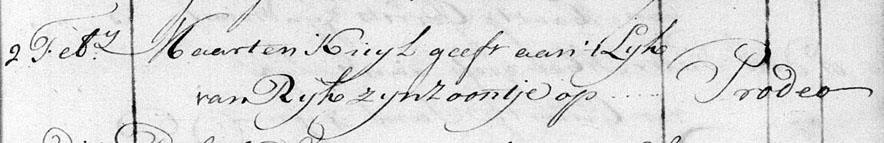 2 Feb:y Maarten Kuyl geeft aan 't Lyk Prodeo
van Ryk zyn Zoontje op